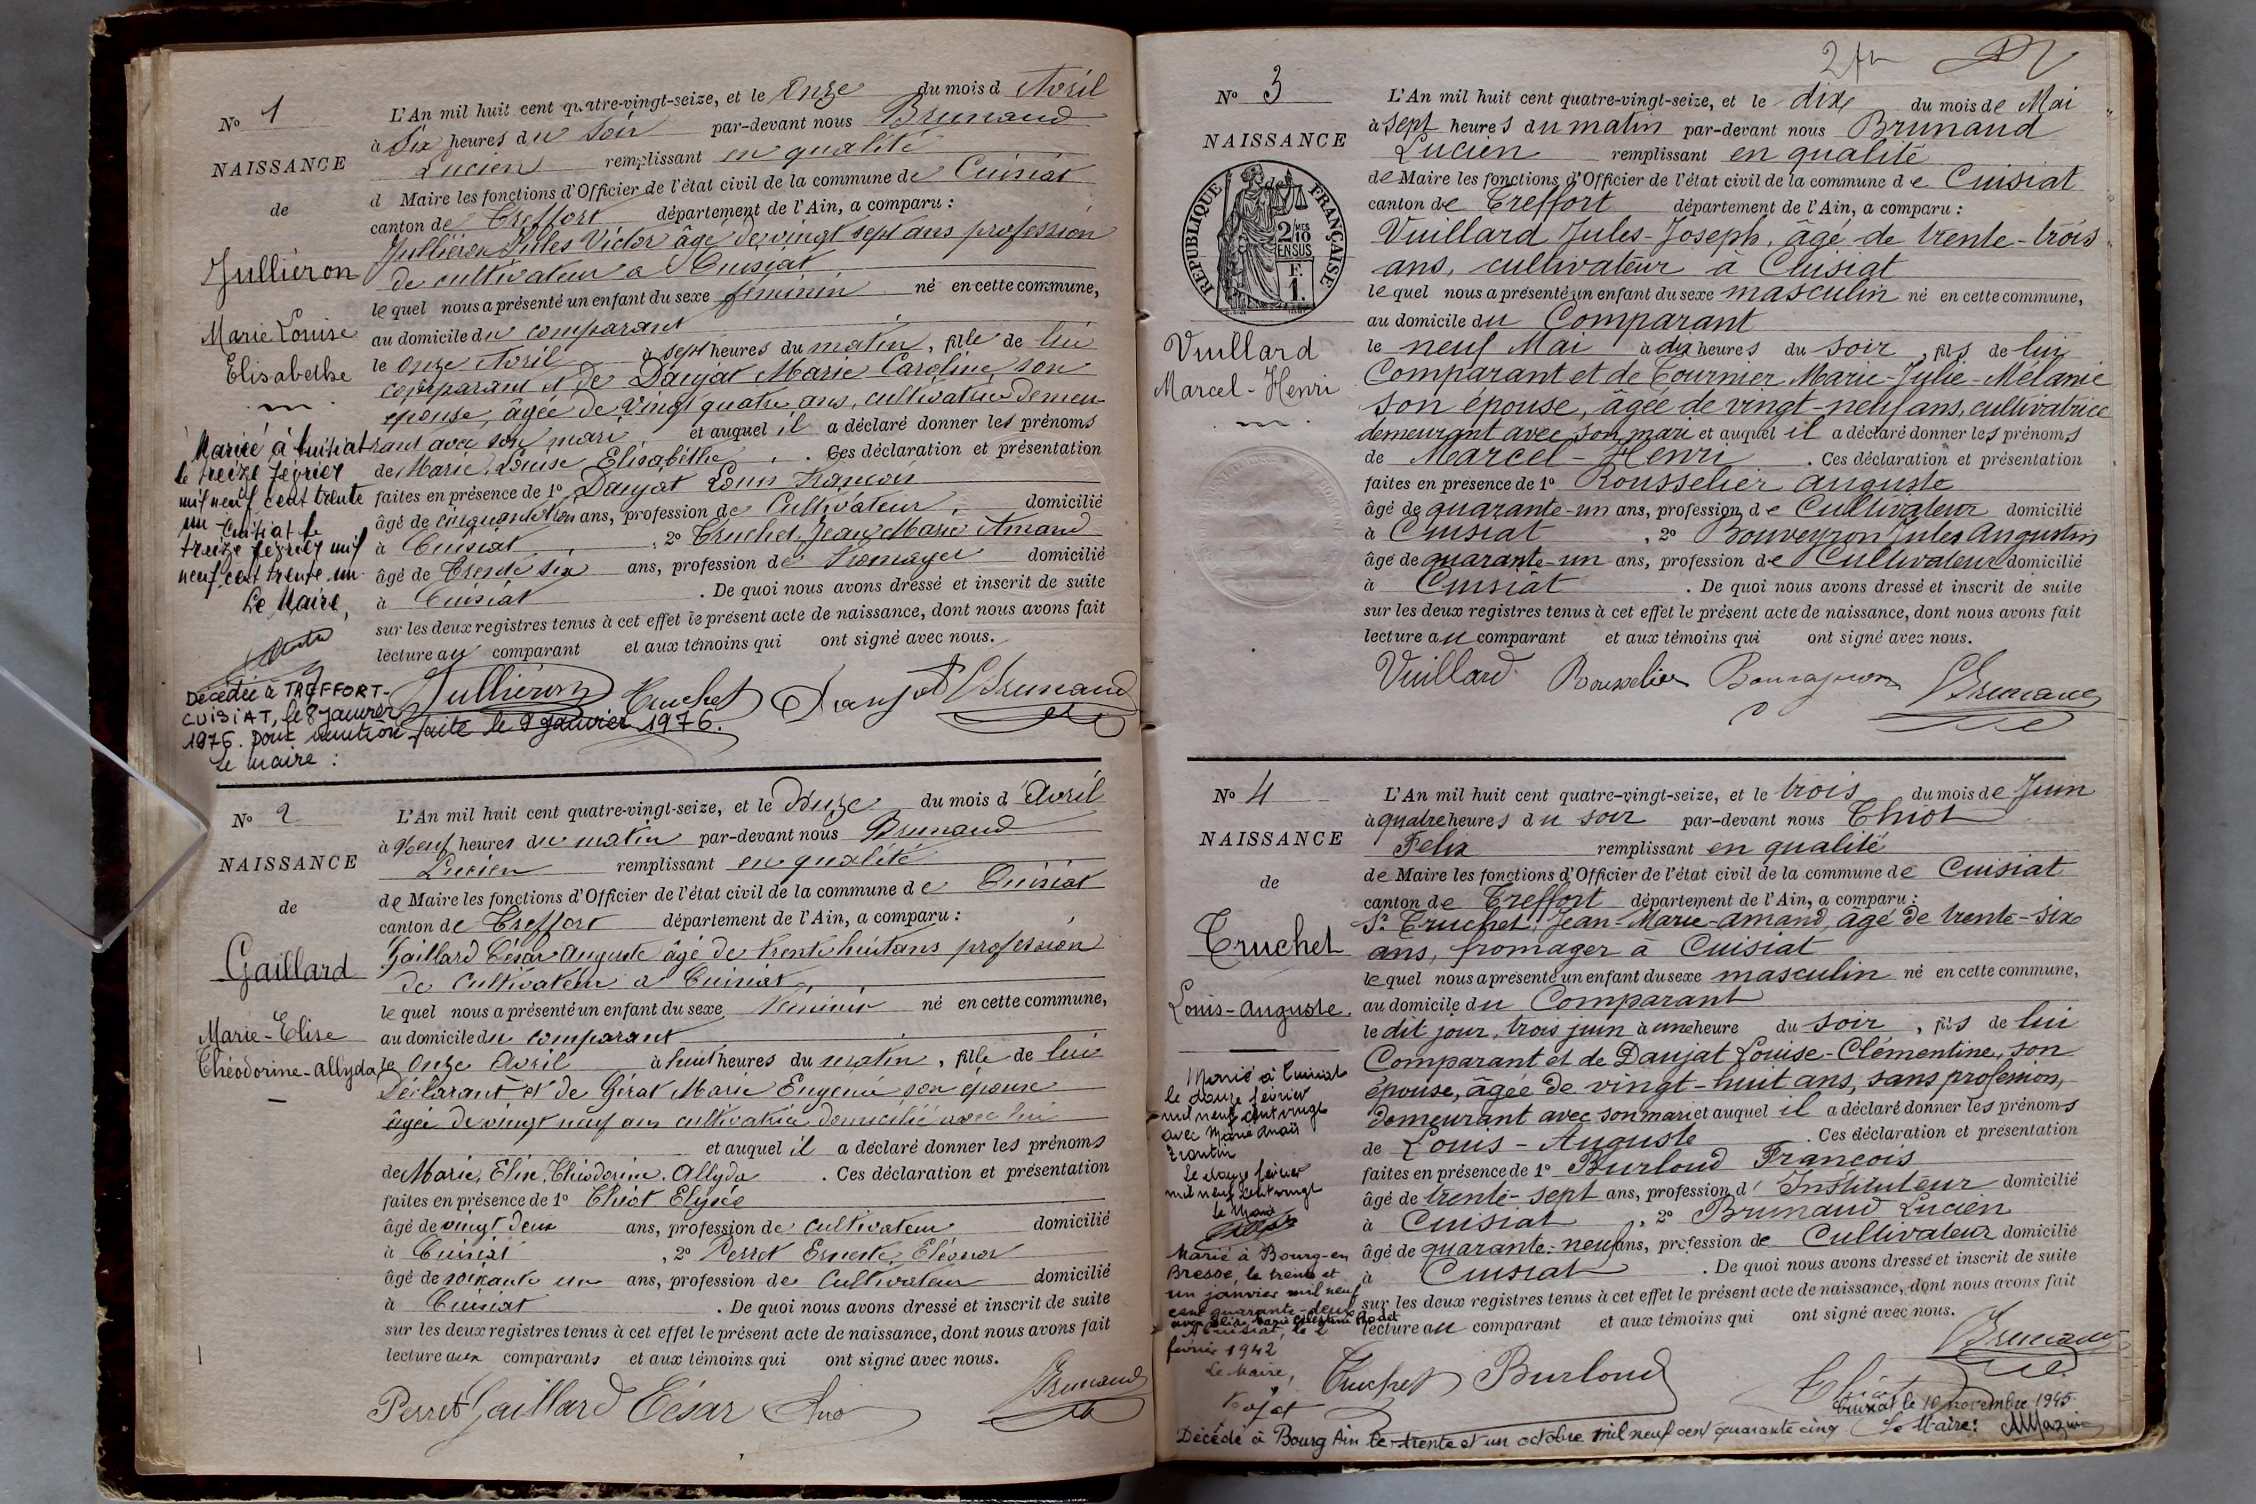 Nº 1
NAISSANCE
de
Julliéron
Marie Louise
Elisabethe
Mariée à Cuisiat
le treize février
mil neuf cent trente
un Cuisiat le
treize février mil
neuf cent trente un
Le Maire,
Décédée à TREFFORT-
CUISIAT, le 8 janvier
1976. pour mention faite le 9 janvier 1976.
Le Maire :
L'An mil huit cent quatre-vingt-seize, et le onze du mois d Avril
à Six heures du Soir par-devant nous Brunaud
Lucien remplissant en qualité
d Maire les fonctions d'Officier de l'état civil de la commune de Cuisiat
canton de Treffort département de l'Ain, a comparu :
Jullieron Jules Victor âgé de vingt sept ans profession
de cultivateur a Cuisiat
le quel nous a présenté un enfant du sexe féminin né en cette commune,
au domicile du comparant
le onze Avril à sept heures du matin, fille de lui
comparant et de Daujat Marie Caroline son
épouse, âgée de vingt quatre ans, cultivatrice demeu
rant avec son mari et auquel il a déclaré donner les prénoms
de Marie Louise Elisabéthe. Ces déclaration et présentation
faites en présence de 1º Daujat Louis François
âgé de ans, profession de Cultivateur, domicilié
à Cuisiat, 2º Truchet Jean Marie Amand
âgé de Trente six ans, profession de Fromager domicilié
à Cuisiat. De quoi nous avons dressé et inscrit de suite
sur les deux registres tenus à cet effet le présent acte de naissance, dont nous avons fait
lecture au comparant et aux témoins qui ont signé avec nous.
Jullieron Truchet Daujat Brunaud
Nº 2
NAISSANCE
de
Gaillard
Marie-Elise
Théodorine-Allyda
L'An mil huit cent quatre-vingt-seize, et le Douze du mois d' Avril
à Neuf heures du matin par-devant nous Brunaud
Lucien remplissant en qualité
de Maire les fonctions d'Officier de l'état civil de la commune de Cuisiat
canton de Treffort département de l'Ain, a comparu :
Gaillard César Auguste âgé de trente huit ans profession
de cultivateur a Cuisiat
le quel nous a présenté un enfant du sexe féminin né en cette commune,
au domicile du comparant
le onze Avril à huit heures du matin, fille de lui
Déclarant et de Girat Marie Eugenie son épouse
âgée de vingt neuf ans cultivatrice domicilié avec lui
et auquel il a déclaré donner les prénoms
de Marie, Elise, Théodorine, Allyda. Ces déclaration et présentation
faites en présence de 1º Thiot Elysée
âgé de vingt deux ans, profession de cultivateur domicilié
à Cuisiat, 2º Perret Ernest Eléonor
âgé de soixante un ans, profession de Cultivateur domicilié
à Cuisiat. De quoi nous avons dressé et inscrit de suite
sur les deux registres tenus à cet effet le présent acte de naissance, dont nous avons fait
lecture aux comparants et aux témoins qui ont signé avec nous.
Perret Gaillard César Thiot Brunaud
Nº 3
NAISSANCE
REPUBLIQUE FRANÇAISE
2/10
EN SUS
F.
1.
Vuillard
Marcel-Henri
L'An mil huit cent quatre-vingt-seize, et le dix du mois de Mai
à sept heures du matin par-devant nous Brunaud
Lucien remplissant en qualité
de Maire les fonctions d'Officier de l'état civil de la commune de Cuisiat
canton de Treffort département de l'Ain, a comparu :
Vuillard Jules-Joseph, âgé de trente-trois
ans, cultivateur à Cuisiat
le quel nous a présenté un enfant du sexe masculin né en cette commune,
au domicile du Comparant
le neuf Mai à dix heures du soir, fils de lui
Comparant et de Tournier Marie-Julie-Mélanie
son épouse, âgée de vingt-neuf ans, cultivatrice
demeurant avec son mari et auquel il a déclaré donner les prénoms
de Marcel-Henri. Ces déclaration et présentation
faites en présence de 1º Rousselier Auguste
âgé de quarante-un ans, profession de Cultivateur domicilié
à Cuisiat, 2º Bouveyron Jules Augustin
âgé de quarante-un ans, profession de Cultivateur domicilié
à Cuisiat. De quoi nous avons dressé et inscrit de suite
sur les deux registres tenus à cet effet le présent acte de naissance, dont nous avons fait
lecture au comparant et aux témoins qui ont signé avec nous.
Vuillard Rousselier Bouveyron Brunaud
Nº 4
NAISSANCE
de
Truchet
Louis-Auguste
Marié à Cuisiat
le douze février
mil neuf cent vingt
avec Marie Anaïs
Le douze février
mil neuf cent vingt
le Maire
Marié à Bourg-en
Bresse, le trente et
un janvier mil neuf
cent quarante-deux
avec Elise Marie Célestine Rodet
A Cuisiat, le 2
février 1942
Le Maire,
L'An mil huit cent quatre-vingt-seize, et le trois du mois de Juin
à quatre heures du soir par-devant nous Thiot
Félix remplissant en qualité
de Maire les fonctions d'Officier de l'état civil de la commune de Cuisiat
canton de Treffort département de l'Ain, a comparu :
Sr. Truchet Jean-Marie-Amand, âgé de trente-six
ans, fromager à Cuisiat
le quel nous a présenté un enfant du sexe masculin né en cette commune,
au domicile du Comparant
le dit jour, trois juin à une heure du soir, fils de lui
Comparant et de Daujat Louise-Clémentine, son
épouse, âgée de vingt-huit ans, sans profession,
demeurant avec son mari et auquel il a déclaré donner les prénoms
de Louis-Auguste. Ces déclaration et présentation
faites en présence de 1º Burloud François
âgé de trente-sept ans, profession d' Instituteur domicilié
à Cuisiat, 2º Brunaud Lucien
âgé de quarante-neuf ans, profession de Cultivateur domicilié
à Cuisiat. De quoi nous avons dressé et inscrit de suite
sur les deux registres tenus à cet effet le présent acte de naissance, dont nous avons fait
lecture au comparant et aux témoins qui ont signé avec nous.
Truchet Burloud Thiot Brunaud
Cuisiat le 10 novembre 1945
Décédé à Bourg Ain le trente et un octobre mil neuf cent quarante cinq Le Maire: